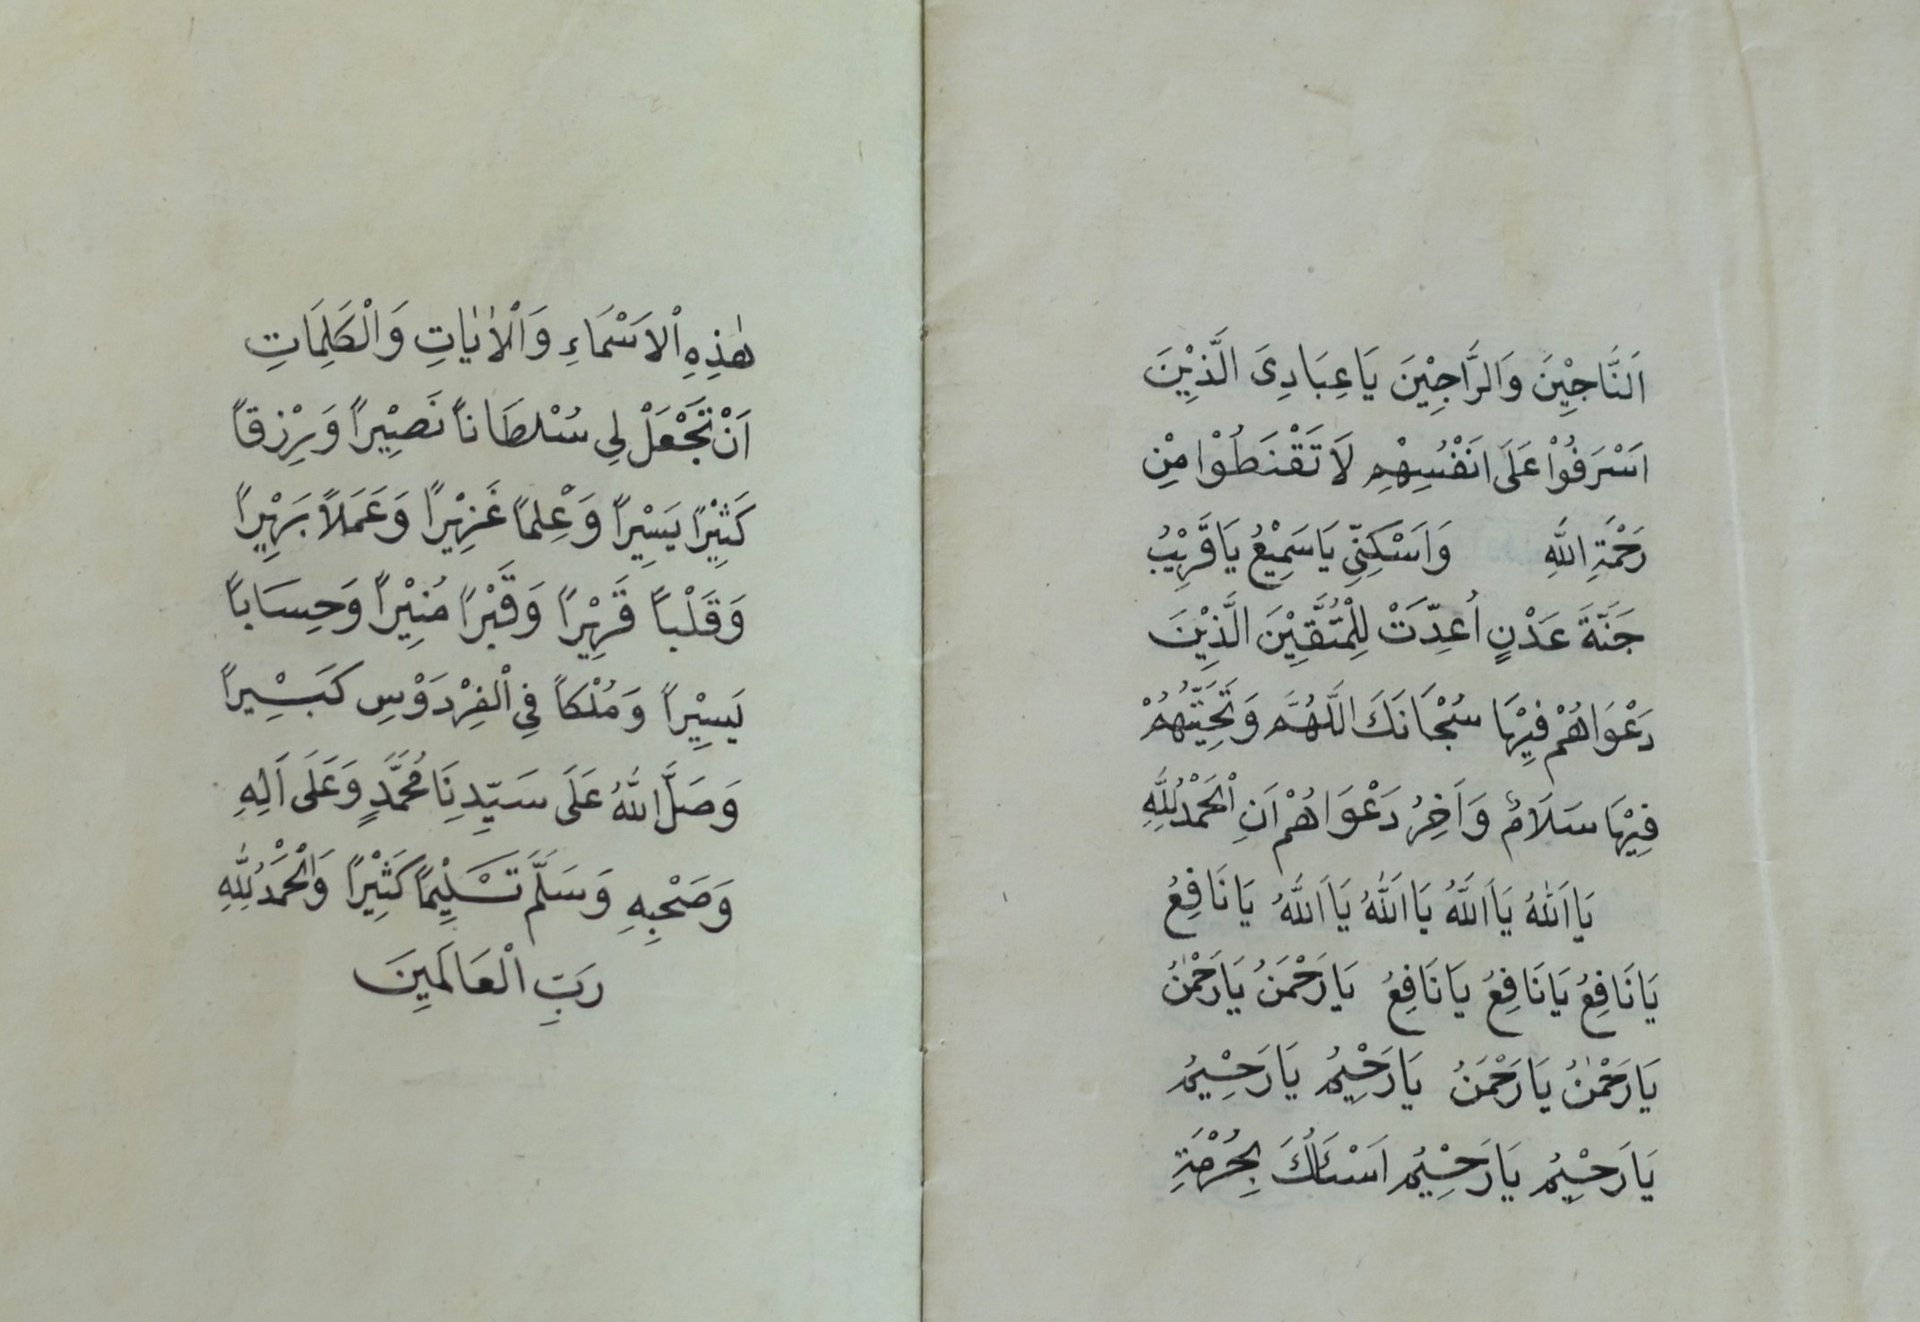 اَلنَّاجِيْنَ وَالرَّاجِيْنَ يَاعِبَادِىَ الَّذِيْنَ
اَسْرَفُوْا عَلَى اَنْفُسِهِمْ لَا تَقْنَطُوْا مِنْ
رَحْمَةِ اللّٰهِ وَاَسْكِنِّى يَاسَمِيْعُ يَاقَرِيْبُ
جَنَّةَ عَدْنٍ اُعِدَّتْ لِلْمُتَّقِيْنَ الَّذِيْنَ
دَعْوَاهُمْ فِيْهَا سُبْحَانَكَ اللّٰهُمَّ وَتَحِيَّتُهُمْ
فِيْهَا سَلَامٌ وَاَخِرُ دَعْوَاهُمْ اَنِ الْحَمْدُلِلّٰهِ
يَااَللّٰهُ يَااَللّٰهُ يَااَللّٰهُ يَااَللّٰهُ يَانَافِعُ
يَانَافِعُ يَانَافِعُ يَانَافِعُ يَارَحْمَنُ يَارَحْمٰنُ
يَارَحْمٰنُ يَارَحْمَنُ يَارَحِيْمُ يَارَحِيْمُ
يَارَحِيْمُ يَارَحِيْمُ اَسْئَلُكَ بِحُرْمَةِ
هٰذِهِ اْلاَسْمَاءِ وَاْلاٰيَاتِ وَالْكَلِمَاتِ
اَنْ تَجْعَلْ لِى سُلْطَانًا نَصِيْرًا وَرِزْقًا
كَثِيْرًا يَسِيْرًا وَعِلْمًا غَزِيْرًا وَعَمَلًا بَرِيْرًا
وَقَلْبًا قَرِيْرًا وَقَبْرًا مُنِيْرًا وَحِسَابًا
يَسِيْرًا وَمُلْكًا فِى الْفِرْدَوْسِ كَبِيْرًا
وَصَلَّ اللّٰهُ عَلَى سَيِّدِنَا مُحَمَّدٍ وَعَلَى اَلِهِ
وَصَحْبِهِ وَسَلَّمَ تَسْلِيْمًا كَثِيْرًا وَالْحَمْدُلِلّٰهِ
رَبِّ الْعَالَمِيْنَ